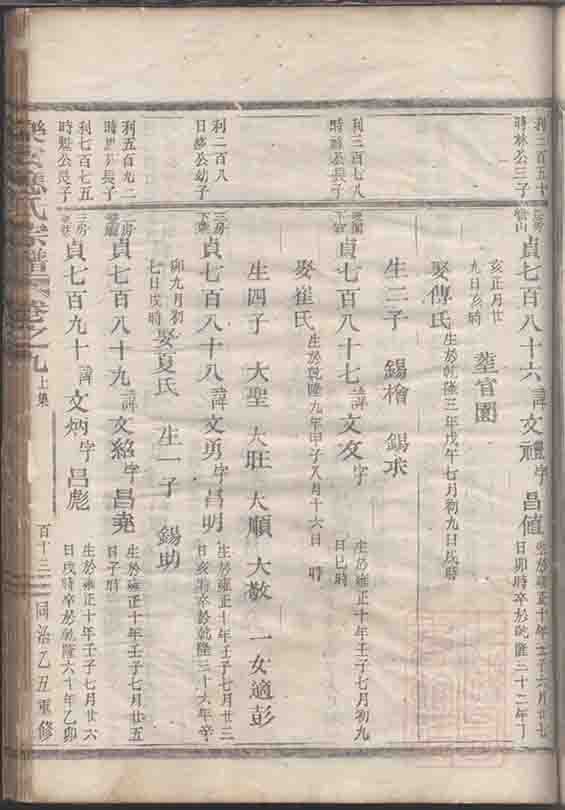 利二百五十
時林公三子
貞七百八十六 諱文禮 字昌值 生於雍正十年壬子六月廿七
日卯時卒於乾隆三十二年丁
亥正月廿
九日亥時 葬官園
娶傳氏 生於乾隆三年戊午七月初九日戌時
生二子 錫檜 錫求
利三百七八
時 公長子
貞七百八十七 諱文友 字 生於雍正十年壬子七月初九
日巳時
娶崔氏 生於乾隆九年甲子八月十六日 時
生四子 大聖 大旺 大順 大敬 一女適彭
利二百八
日 公幼子
三房
貞七百八十八 諱文勇 字昌明 生於雍正十年壬子七月廿三
日亥時卒於乾隆三十六年辛
卯九月初
七日戌時 娶夏氏 生一子 錫助
利五百九二
時 公長子
貞七百八十九 諱文紹 字昌堯 生於雍正十年壬子七月廿五
日子時
利七百七五
時魁公長子
三房
貞七百九十 諱文炳 字呂彪 生於雍正十年壬子七月廿六
日戌時卒於乾隆六十年乙卯
氏宗譜 卷之九 上集 百十三 同治乙丑重修